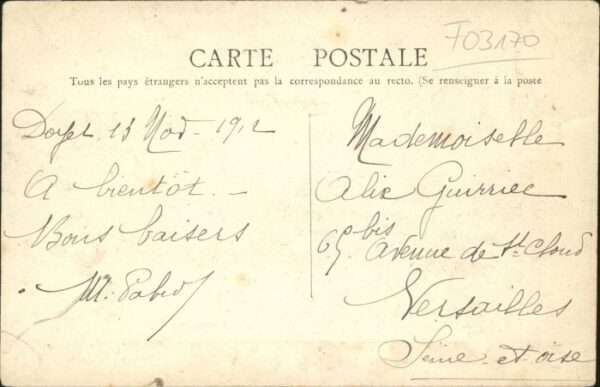 F03170
CARTE POSTALE
Tous les pays étrangers n'acceptent pas la correspondance au recto. (Se renseigner à la poste
13 Nov - 1912
A bientôt. -
Bons baisers
M.
Mademoiselle
Alix
bis
Avenue de St Cloud
Versailles
Seine-et-oise